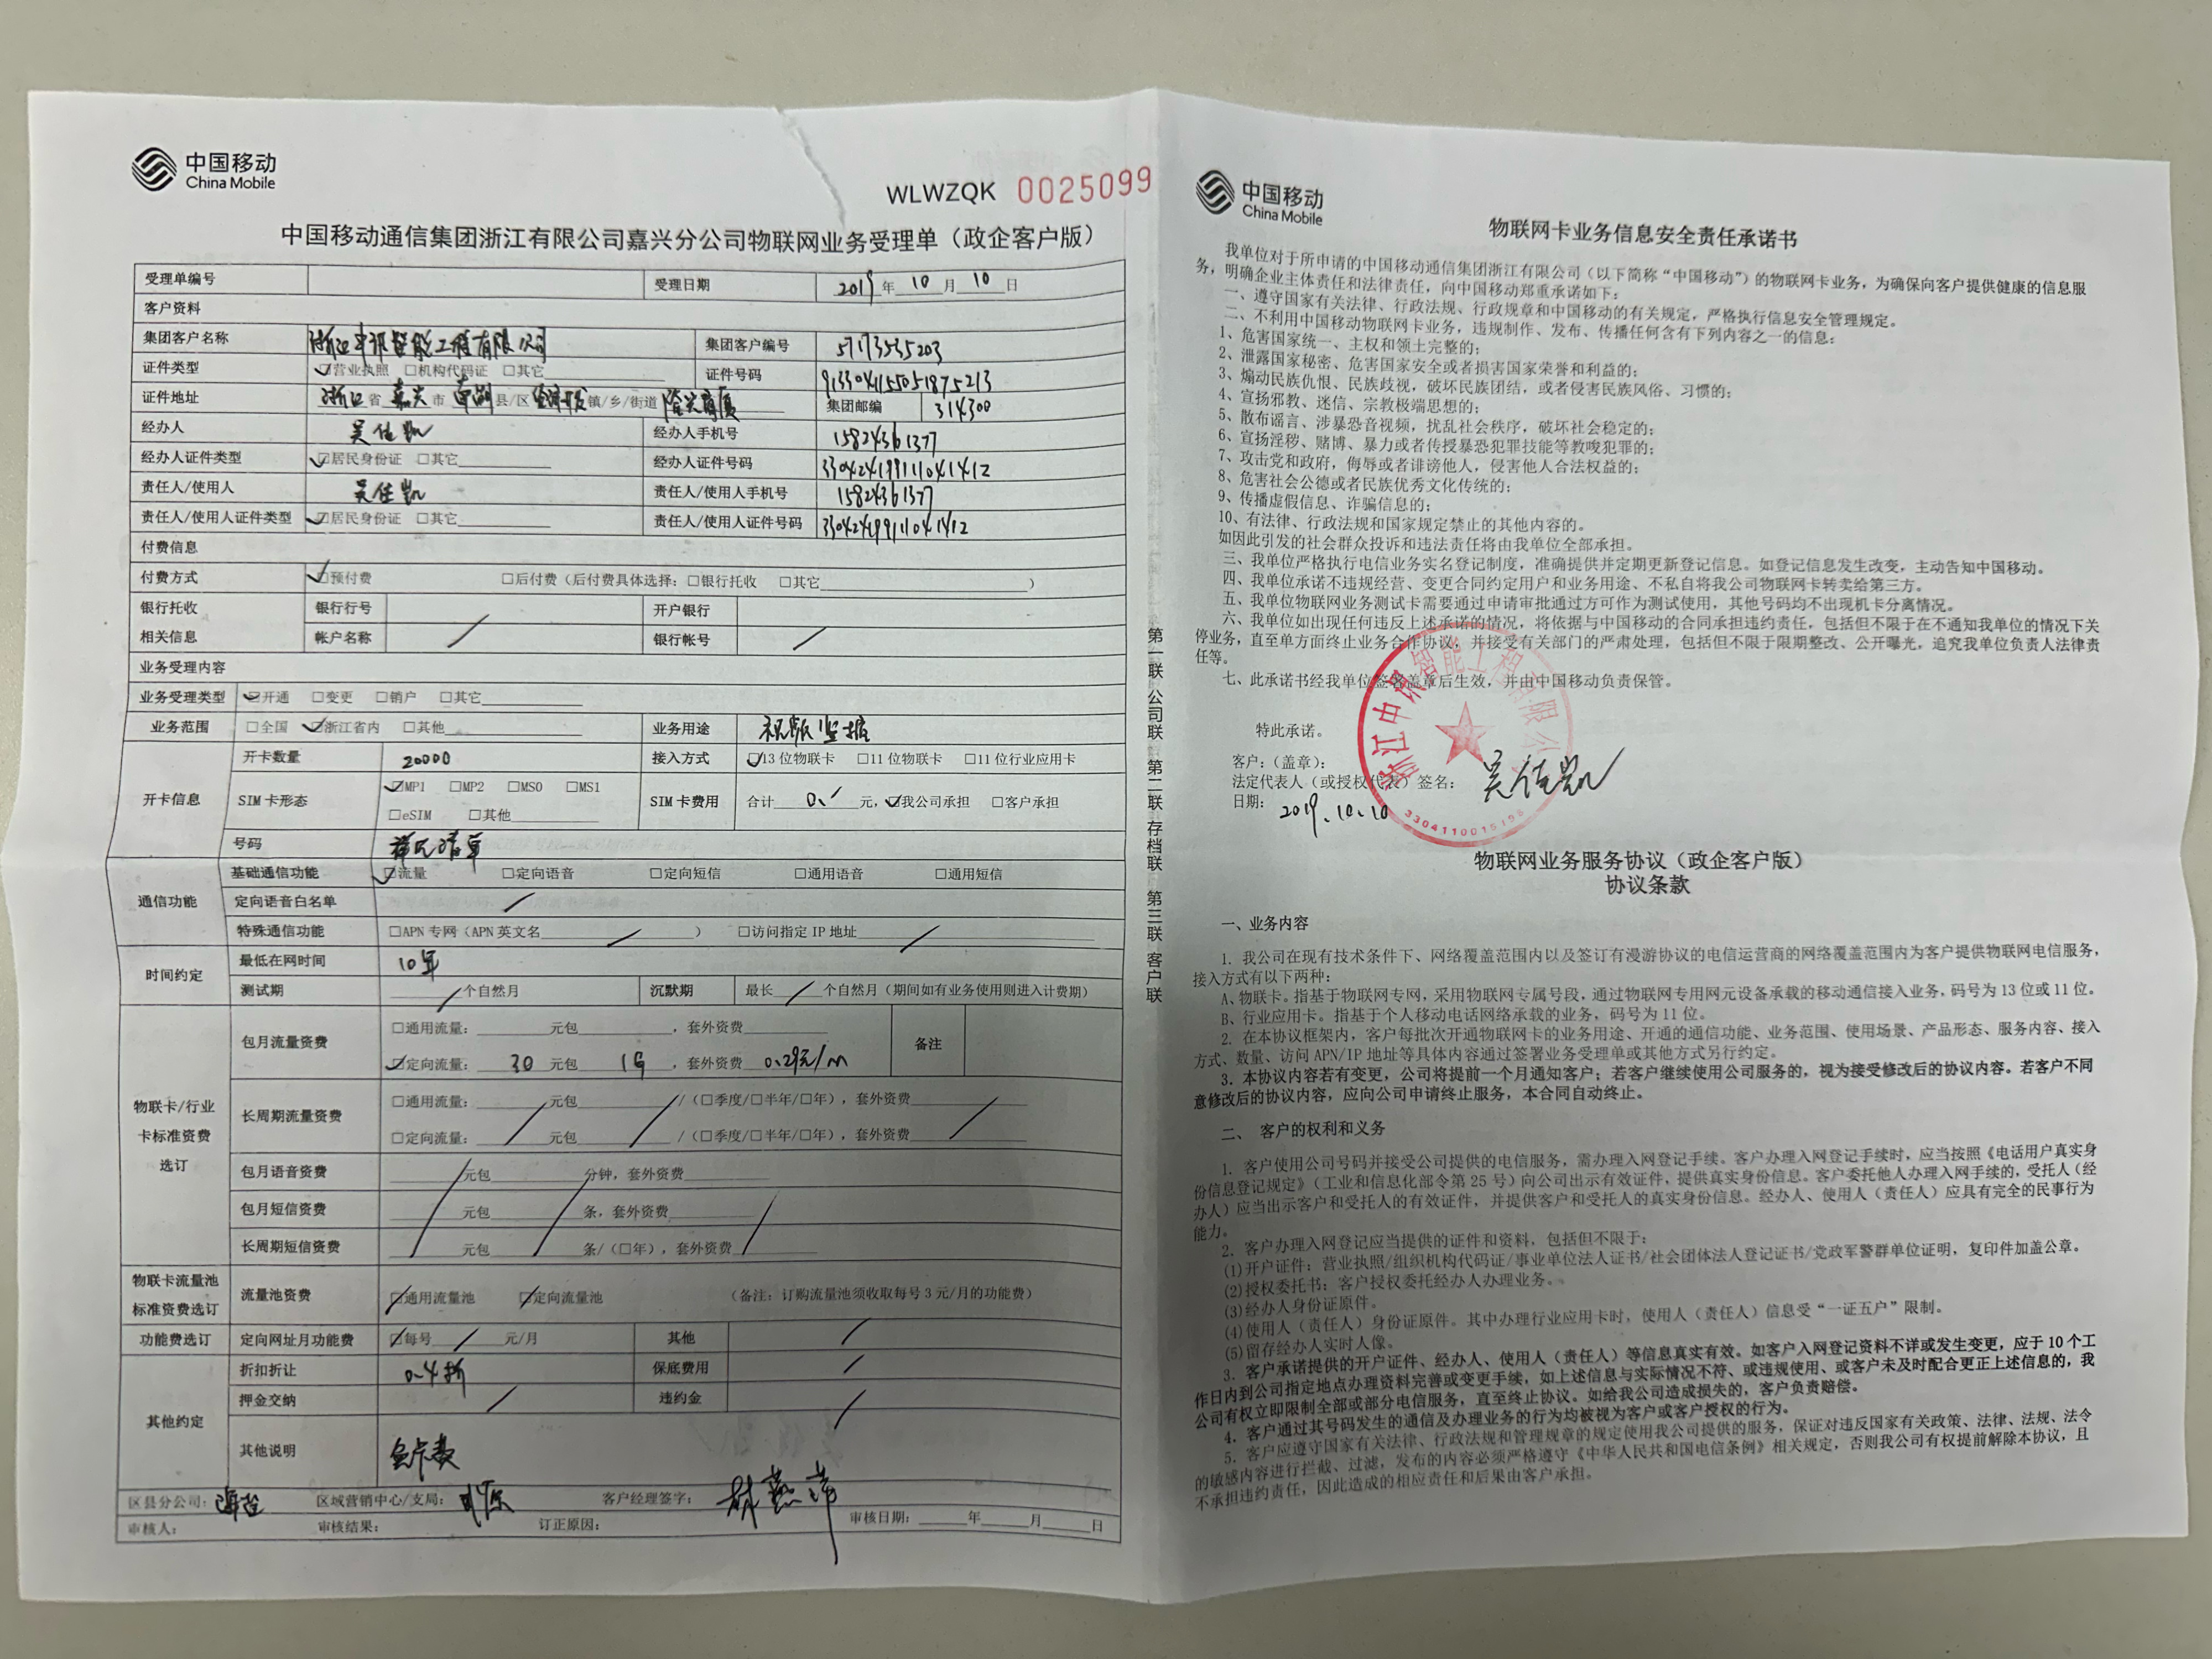 中国移动
China Mobile
WLWZQK 0025099
中国移动通信集团浙江有限公司嘉兴分公司物联网业务受理单（政企客户版）
受理单编号 受理日期 2019年10月10日
客户资料
集团客户名称 浙江中讯智能工程有限公司 集团客户编号 57173535203
证件类型 ☑营业执照 □机构代码证 □其它 证件号码
证件地址 浙江省 嘉兴市 南湖县/区 镇/乡/街道 集团邮编 314300
经办人 吴佳凯 经办人手机号 15824361377
经办人证件类型 ☑居民身份证 □其它 经办人证件号码 330424199111041412
责任人/使用人 吴佳凯 责任人/使用人手机号 15824361377
责任人/使用人证件类型 ☑居民身份证 □其它 责任人/使用人证件号码 330424199111041412
付费信息
付费方式 ☑预付费 □后付费（后付费具体选择：□银行托收 □其它 ）
银行托收 银行行号 开户银行
相关信息 帐户名称 / 银行帐号 /
业务受理内容
业务受理类型 ☑开通 □变更 □销户 □其它
业务范围 □全国 ☑浙江省内 □其他 业务用途 视频监控
开卡信息 开卡数量 20000 接入方式 ☑13位物联卡 □11位物联卡 □11位行业应用卡
SIM卡形态 ☑MP1 □MP2 □MS0 □MS1 SIM卡费用 合计 0 元，☑我公司承担 □客户承担
□eSIM □其他
号码 详见清单
通信功能 基础通信功能 ☑流量 □定向语音 □定向短信 □通用语音 □通用短信
定向语音白名单 /
特殊通信功能 □APN专网（APN英文名 / ） □访问指定IP地址 /
时间约定 最低在网时间 10年
测试期 / 个自然月 沉默期 最长 / 个自然月（期间如有业务使用则进入计费期）
物联卡/行业卡标准资费选订 包月流量资费 □通用流量： 元包 ，套外资费 备注
☑定向流量：30元包 1G，套外资费 0.29元/m
长周期流量资费 □通用流量： / 元包 / /（□季度/□半年/□年），套外资费 /
□定向流量： / 元包 / /（□季度/□半年/□年），套外资费 /
包月语音资费 / 元包 / 分钟，套外资费 /
包月短信资费 / 元包 / 条，套外资费 /
长周期短信资费 / 元包 / 条/（□年），套外资费 /
物联卡流量池标准资费选订 流量池资费 □通用流量池 □定向流量池 （备注：订购流量池须收取每号3元/月的功能费）
功能费选订 定向网址月功能费 □每号 / 元/月 其他 /
其他约定 折扣折让 0.4折 保底费用 /
押金交纳 / 违约金 /
其他说明
区县分公司：海盐 区域营销中心/支局： 客户经理签字：
审核人： 审核结果： 订正原因： 审核日期： 年 月 日
第一联 公司联 第二联 存档联 第三联 客户联
中国移动
China Mobile
物联网卡业务信息安全责任承诺书
我单位对于所申请的中国移动通信集团浙江有限公司（以下简称“中国移动”）的物联网卡业务，为确保向客户提供健康的信息服
务，明确企业主体责任和法律责任，向中国移动郑重承诺如下：
一、遵守国家有关法律、行政法规、行政规章和中国移动的有关规定，严格执行信息安全管理规定。
二、不利用中国移动物联网卡业务，违规制作、发布、传播任何含有下列内容之一的信息：
1、危害国家统一、主权和领土完整的；
2、泄露国家秘密、危害国家安全或者损害国家荣誉和利益的；
3、煽动民族仇恨、民族歧视，破坏民族团结，或者侵害民族风俗、习惯的；
4、宣扬邪教、迷信、宗教极端思想的；
5、散布谣言、涉暴恐音视频，扰乱社会秩序，破坏社会稳定的；
6、宣扬淫秽、赌博、暴力或者传授暴恐犯罪技能等教唆犯罪的；
7、攻击党和政府，侮辱或者诽谤他人，侵害他人合法权益的；
8、危害社会公德或者民族优秀文化传统的；
9、传播虚假信息、诈骗信息的；
10、有法律、行政法规和国家规定禁止的其他内容的。
如因此引发的社会群众投诉和违法责任将由我单位全部承担。
三、我单位严格执行电信业务实名登记制度，准确提供并定期更新登记信息。如登记信息发生改变，主动告知中国移动。
四、我单位承诺不违规经营、变更合同约定用户和业务用途、不私自将我公司物联网卡转卖给第三方。
五、我单位物联网业务测试卡需要通过申请审批通过方可作为测试使用，其他号码均不出现机卡分离情况。
六、我单位如出现任何违反上述承诺的情况，将依据与中国移动的合同承担违约责任，包括但不限于在不通知我单位的情况下关
停业务，直至单方面终止业务合作协议，并接受有关部门的严肃处理，包括但不限于限期整改、公开曝光，追究我单位负责人法律责
任等。
七、此承诺书经我单位签名盖章后生效，并由中国移动负责保管。
特此承诺。
客户：（盖章）：
法定代表人（或授权代表）签名： 吴佳凯
日期：2019.10.10
浙江中讯智能工程有限公司
物联网业务服务协议（政企客户版）
协议条款
一、业务内容
1. 我公司在现有技术条件下、网络覆盖范围内以及签订有漫游协议的电信运营商的网络覆盖范围内为客户提供物联网电信服务，
接入方式有以下两种：
A、物联卡。指基于物联网专网，采用物联网专属号段，通过物联网专用网元设备承载的移动通信接入业务，码号为13位或11位。
B、行业应用卡。指基于个人移动电话网络承载的业务，码号为11位。
2. 在本协议框架内，客户每批次开通物联网卡的业务用途、开通的通信功能、业务范围、使用场景、产品形态、服务内容、接入
方式、数量、访问APN/IP地址等具体内容通过签署业务受理单或其他方式另行约定。
3. 本协议内容若有变更，公司将提前一个月通知客户；若客户继续使用公司服务的，视为接受修改后的协议内容。若客户不同
意修改后的协议内容，应向公司申请终止服务，本合同自动终止。
二、 客户的权利和义务
1. 客户使用公司号码并接受公司提供的电信服务，需办理入网登记手续。客户办理入网登记手续时，应当按照《电话用户真实身
份信息登记规定》（工业和信息化部令第25号）向公司出示有效证件，提供真实身份信息。客户委托他人办理入网手续的，受托人（经
办人）应当出示客户和受托人的有效证件，并提供客户和受托人的真实身份信息。经办人、使用人（责任人）应具有完全的民事行为
能力。
2. 客户办理入网登记应当提供的证件和资料，包括但不限于：
(1)开户证件：营业执照/组织机构代码证/事业单位法人证书/社会团体法人登记证书/党政军警群单位证明，复印件加盖公章。
(2)授权委托书：客户授权委托经办人办理业务。
(3)经办人身份证原件。
(4)使用人（责任人）身份证原件。其中办理行业应用卡时，使用人（责任人）信息受“一证五户”限制。
(5)留存经办人实时人像。
3. 客户承诺提供的开户证件、经办人、使用人（责任人）等信息真实有效。如客户入网登记资料不详或发生变更，应于10个工
作日内到公司指定地点办理资料完善或变更手续，如上述信息与实际情况不符、或违规使用、或客户未及时配合更正上述信息的，我
公司有权立即限制全部或部分电信服务，直至终止协议。如给我公司造成损失的，客户负责赔偿。
4. 客户通过其号码发生的通信及办理业务的行为均被视为客户或客户授权的行为。
5. 客户应遵守国家有关法律、行政法规和管理规章的规定使用我公司提供的服务，保证对违反国家有关政策、法律、法规、法令
的敏感内容进行拦截、过滤，发布的内容必须严格遵守《中华人民共和国电信条例》相关规定，否则我公司有权提前解除本协议，且
不承担违约责任，因此造成的相应责任和后果由客户承担。